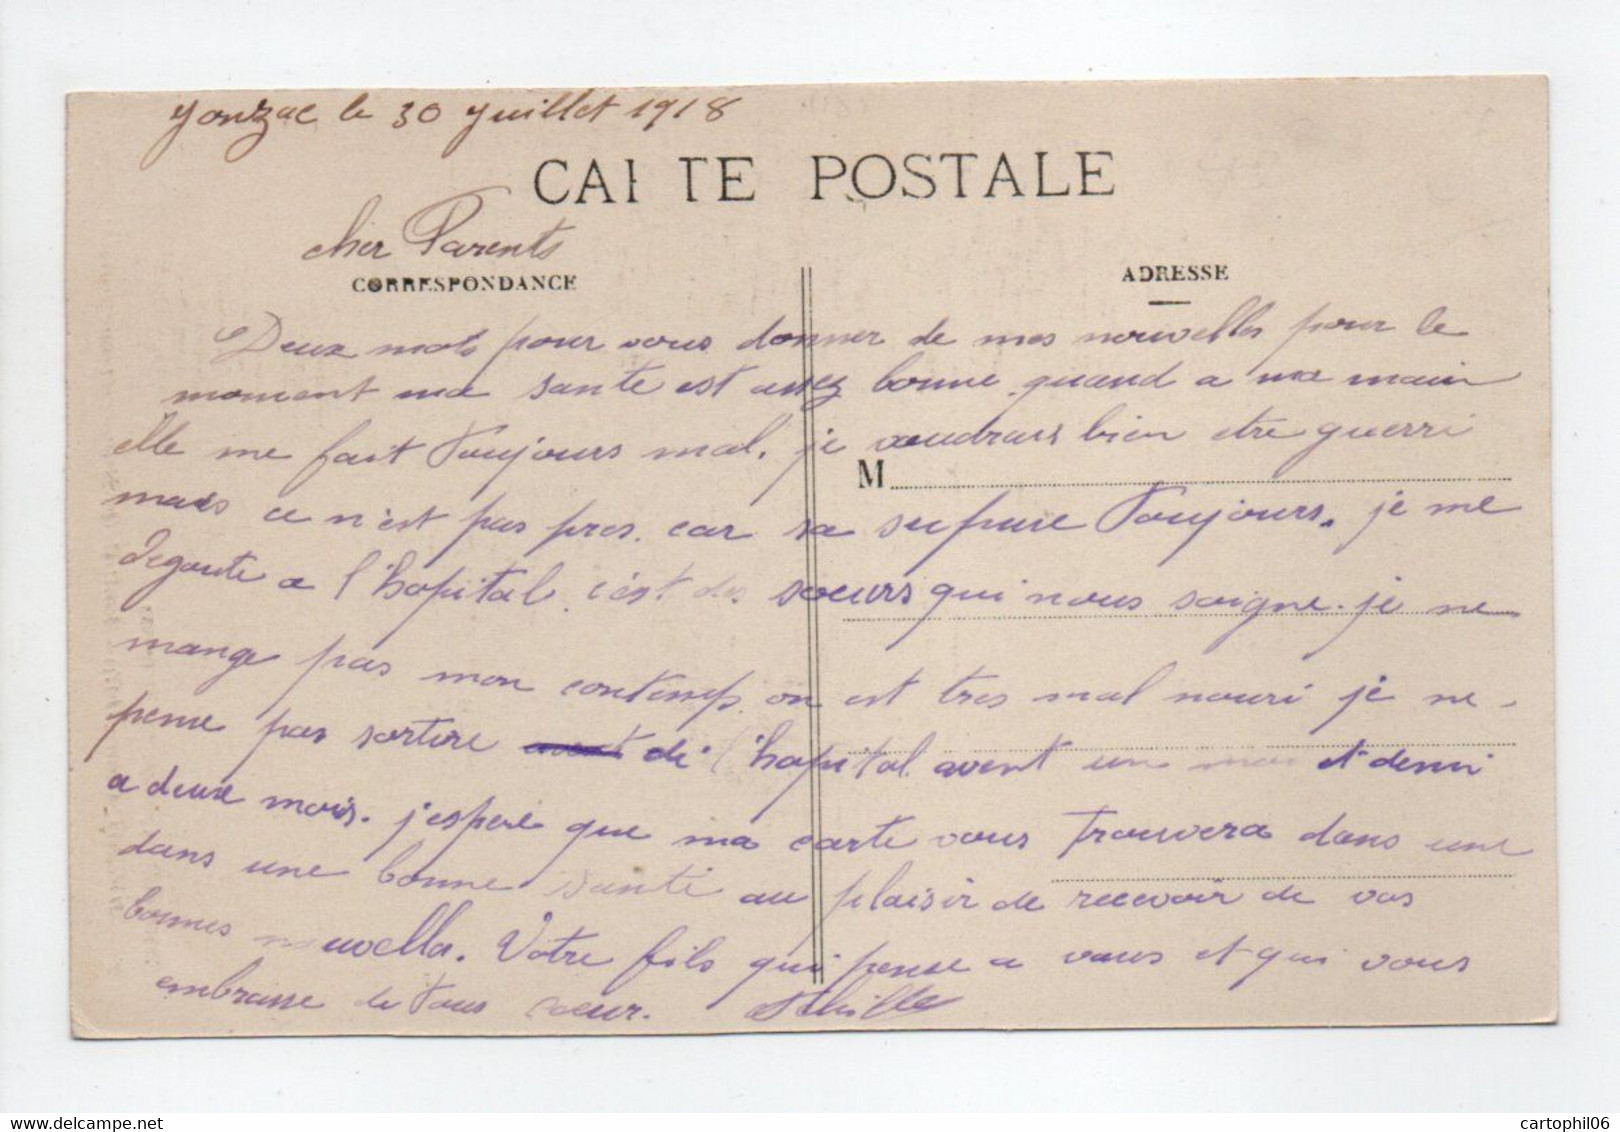 Jonzac le 30 Juillet 1918
CARTE POSTALE
cher Parents
CORRESPONDANCE
ADRESSE
Deux mots pour vous donner de mes nouvelles pour le
moment ma sante est assez bonne. quand a ma main
elle me fait Toujours mal. je voudrais bien etre guerri
M
mais ce n'est pas pres. car sa supure Toujours. je me
degoute a l'hopital. c'est des soeurs qui nous soigne. je ne
mange pas mon contemp. on est tres mal nouri je ne
pense pas sortire avent de l'hopital. avent un mois et demi
a deux mois. j'espere que ma carte vous trouvera dans une
dans une bonne santé au plaisir de recevoir de vos
bonnes nouvelles. Votre fils qui pense a vous et qui vous
embrasse de tous coeur. Achille
cartophil06